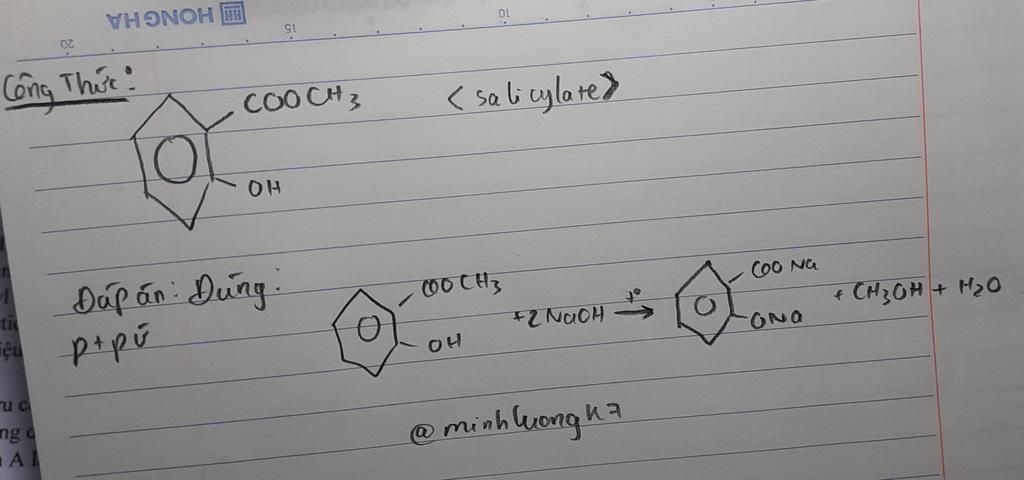 HONG HA
20 15 10
Công Thức:
COOCH3 <salicylate>
OH
Đáp án: Đúng:
p+pứ
COOCH3
OH
+2NaOH t° COONa
ONa
+ CH3OH + H2O
@minhluongk7